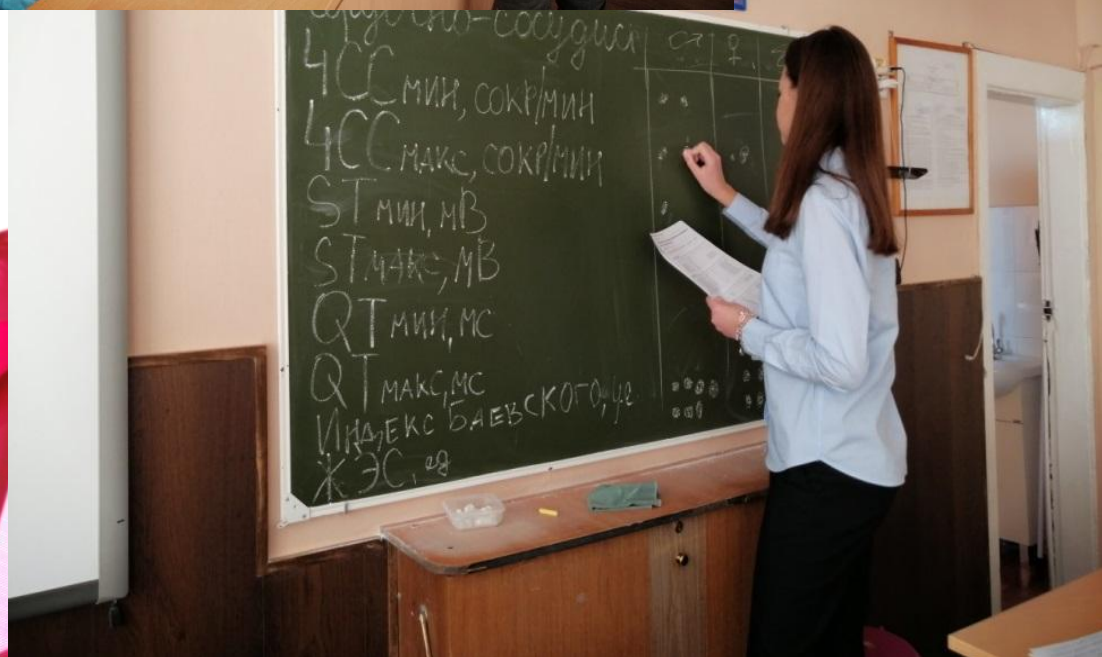 сердечно-сосудист ♂ ♀
ЧСС мин, сокр/мин
ЧСС макс, сокр/мин
ST мин, мВ
ST макс, мВ
QT мин, мс
QT макс, мс
Индекс Баевского, уе
ЖЭС, ед